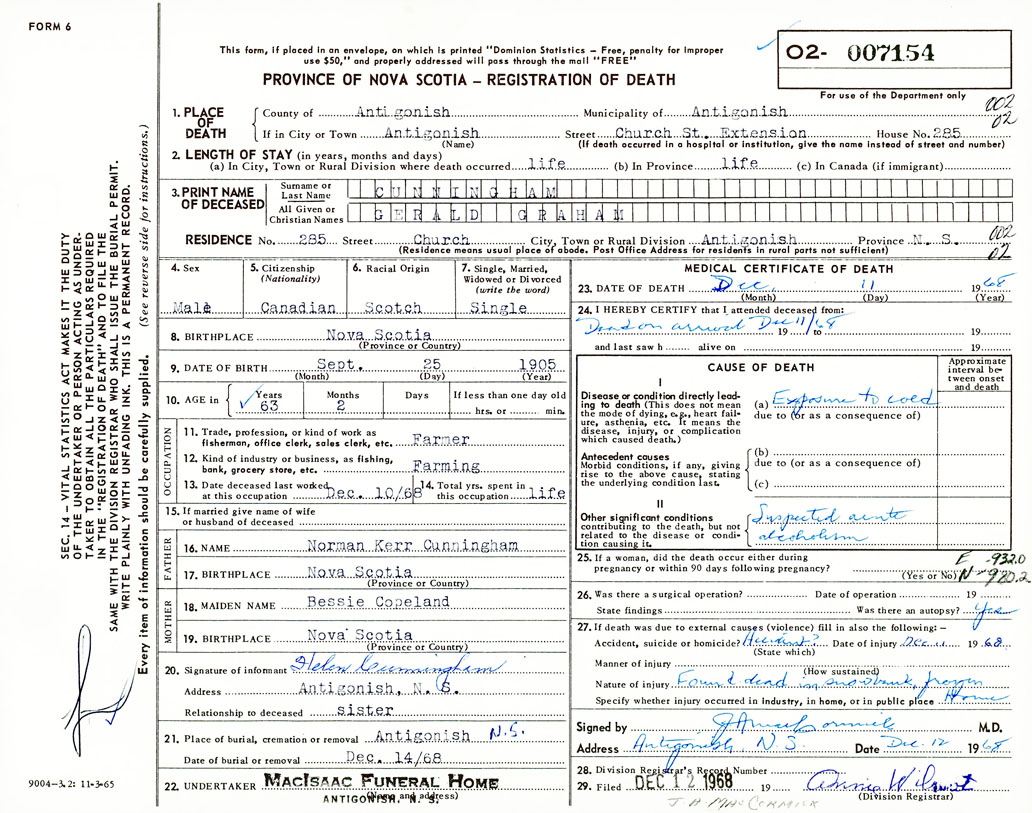 FORM 6
This form, if placed in an envelope, on which is printed "Dominion Statistics – Free, penalty for improper
use $50," and properly addressed will pass through the mail "FREE"
PROVINCE OF NOVA SCOTIA – REGISTRATION OF DEATH
02- 007154
For use of the Department only
002
02
1. PLACE OF DEATH County of Antigonish Municipality of Antigonish
If in City or Town Antigonish Street Church St. Extension House No. 285
(Name) (If death occurred in a hospital or institution, give the name instead of street and number)
2. LENGTH OF STAY (in years, months and days)
(a) In City, Town or Rural Division where death occurred life (b) In Province life (c) In Canada (if immigrant)
3. PRINT NAME OF DECEASED Surname or Last Name CUNNINGHAM
All Given or Christian Names GERALD GRAHAM
RESIDENCE No. 285 Street Church City, Town or Rural Division Antigonish Province N. S.
(Residence means usual place of abode. Post Office Address for residents in rural parts not sufficient)
002
02
4. Sex Male
5. Citizenship (Nationality) Canadian
6. Racial Origin Scotch
7. Single, Married, Widowed or Divorced (write the word) Single
8. BIRTHPLACE Nova Scotia
(Province or Country)
9. DATE OF BIRTH Sept. 25 1905
(Month) (Day) (Year)
10. AGE in Years 63 Months 2 Days If less than one day old hrs. or min.
OCCUPATION
11. Trade, profession, or kind of work as
fisherman, office clerk, sales clerk, etc. Farmer
12. Kind of industry or business, as fishing,
bank, grocery store, etc. Farming
13. Date deceased last worked at this occupation Dec. 10/68
14. Total yrs. spent in this occupation life
15. If married give name of wife
or husband of deceased
FATHER
16. NAME Norman Kerr Cunningham
17. BIRTHPLACE Nova Scotia
(Province or Country)
MOTHER
18. MAIDEN NAME Bessie Copeland
19. BIRTHPLACE Nova Scotia
(Province or Country)
20. Signature of informant Helen Cunningham
Address Antigonish, N. S.
Relationship to deceased sister
21. Place of burial, cremation or removal Antigonish N.S.
Date of burial or removal Dec. 14/68
22. UNDERTAKER MacIsaac Funeral Home
(Name and address)
ANTIGONISH, N. S.
MEDICAL CERTIFICATE OF DEATH
23. DATE OF DEATH Dec. 11 1968
(Month) (Day) (Year)
24. I HEREBY CERTIFY that I attended deceased from:
Dead on arrival Dec 11/68
19 to 19
and last saw h alive on 19
CAUSE OF DEATH
Approximate interval between onset and death
I
Disease or condition directly leading to death (This does not mean
the mode of dying, e.g., heart failure, asthenia, etc. It means the
disease, injury, or complication
which caused death.)
(a) Exposure to cold
due to (or as a consequence of)
Antecedent causes
Morbid conditions, if any, giving
rise to the above cause, stating
the underlying condition last.
(b)
due to (or as a consequence of)
(c)
II
Other significant conditions
contributing to the death, but not
related to the disease or condition causing it.
Suspected acute
alcoholism
25. If a woman, did the death occur either during
pregnancy or within 90 days following pregnancy?
(Yes or No)
E -932.0
N-980.2
26. Was there a surgical operation? Date of operation 19
State findings Was there an autopsy? Yes
27. If death was due to external causes (violence) fill in also the following:–
Accident, suicide or homicide? Accident? Date of injury Dec 11 1968
(State which)
Manner of injury
(How sustained)
Nature of injury Found dead in snowbank, frozen
Specify whether injury occurred in Industry, in home, or in public place Home
Signed by M.D.
Address Antigonish, N.S. Date Dec. 12 1968
28. Division Registrar's Record Number
29. Filed DEC 12 1968 19
(Division Registrar)
J. A. MacCORMICK
SEC. 14 – VITAL STATISTICS ACT MAKES IT THE DUTY
OF THE UNDERTAKER OR PERSON ACTING AS UNDER-
TAKER TO OBTAIN ALL THE PARTICULARS REQUIRED
IN THE "REGISTRATION OF DEATH" AND TO FILE THE
SAME WITH THE DIVISION REGISTRAR WHO SHALL ISSUE THE BURIAL PERMIT.
WRITE PLAINLY WITH UNFADING INK. THIS IS A PERMANENT RECORD.
Every item of information should be carefully supplied. (See reverse side for instructions.)
9004-3.2: 11-3-65